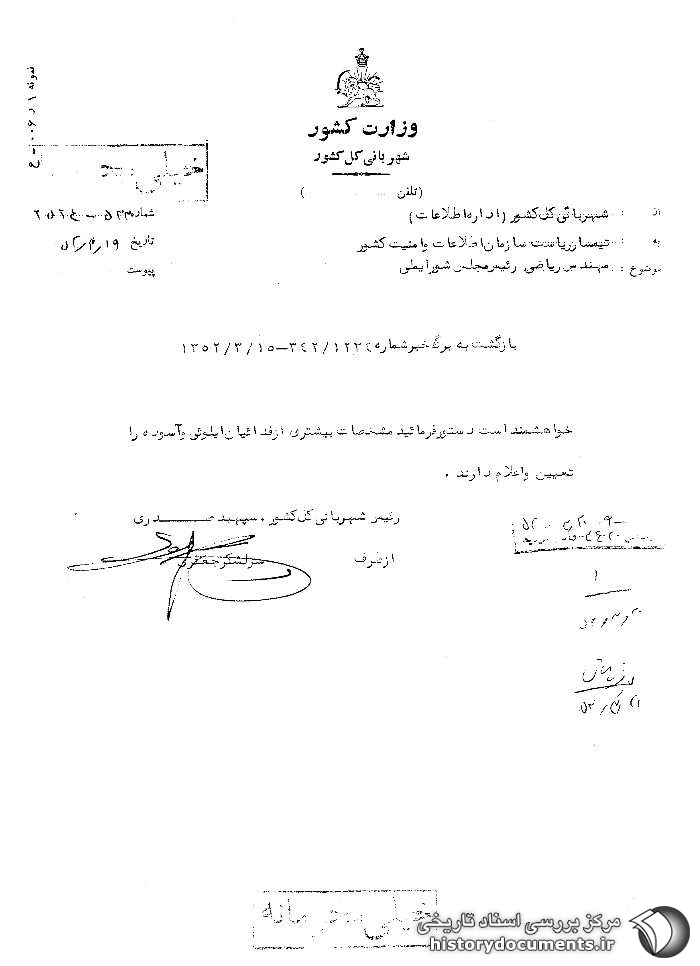 نمونه ۱ ر
وزارت کشور
شهربانی کل کشور
(تلفن ............)
خیلی محرمانه
از : شهربانی کل کشور (اداره اطلاعات)
شماره
به : تیمسار ریاست سازمان اطلاعات و امنیت کشور
تاریخ ۱۹/۳/۵۲
موضوع : مهندس ریاضی رئیس مجلس شورایملی
پیوست
بازگشت به برگ خبر شماره ۳۴۲/۱۲۲۴–۱۳۵۲/۳/۱۵
خواهشمند است دستور فرمائید مشخصات بیشتری از فدائیان ایلوئی و آسوده را
تعیین و اعلام دارند .
رئیس شهربانی کل کشور . سپهبد صدری
از طرف
سرلشکر جعفری
خیلی محرمانه
مرکز بررسی اسناد تاریخی
historydocuments.ir